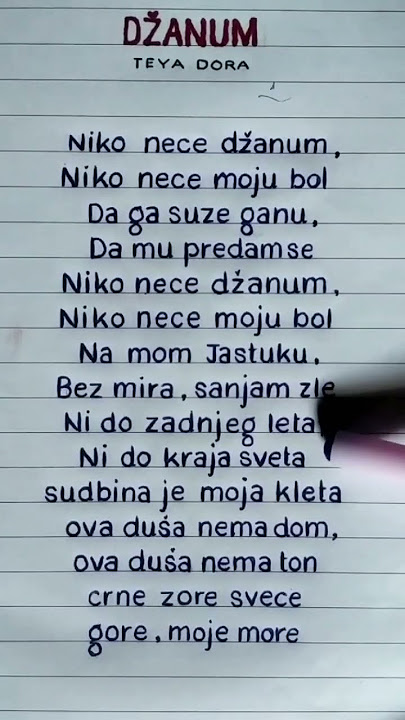 DŽANUM
TEYA DORA
Niko nece džanum,
Niko nece moju bol
Da ga suze ganu,
Da mu predam se
Niko nece džanum,
Niko nece moju bol
Na mom Jastuku,
Bez mira, sanjam zle
Ni do zadnjeg leta
Ni do kraja sveta
sudbina je moja kleta
ova duśa nema dom,
ova duśa nema ton
crne zore svece
gore, moje more